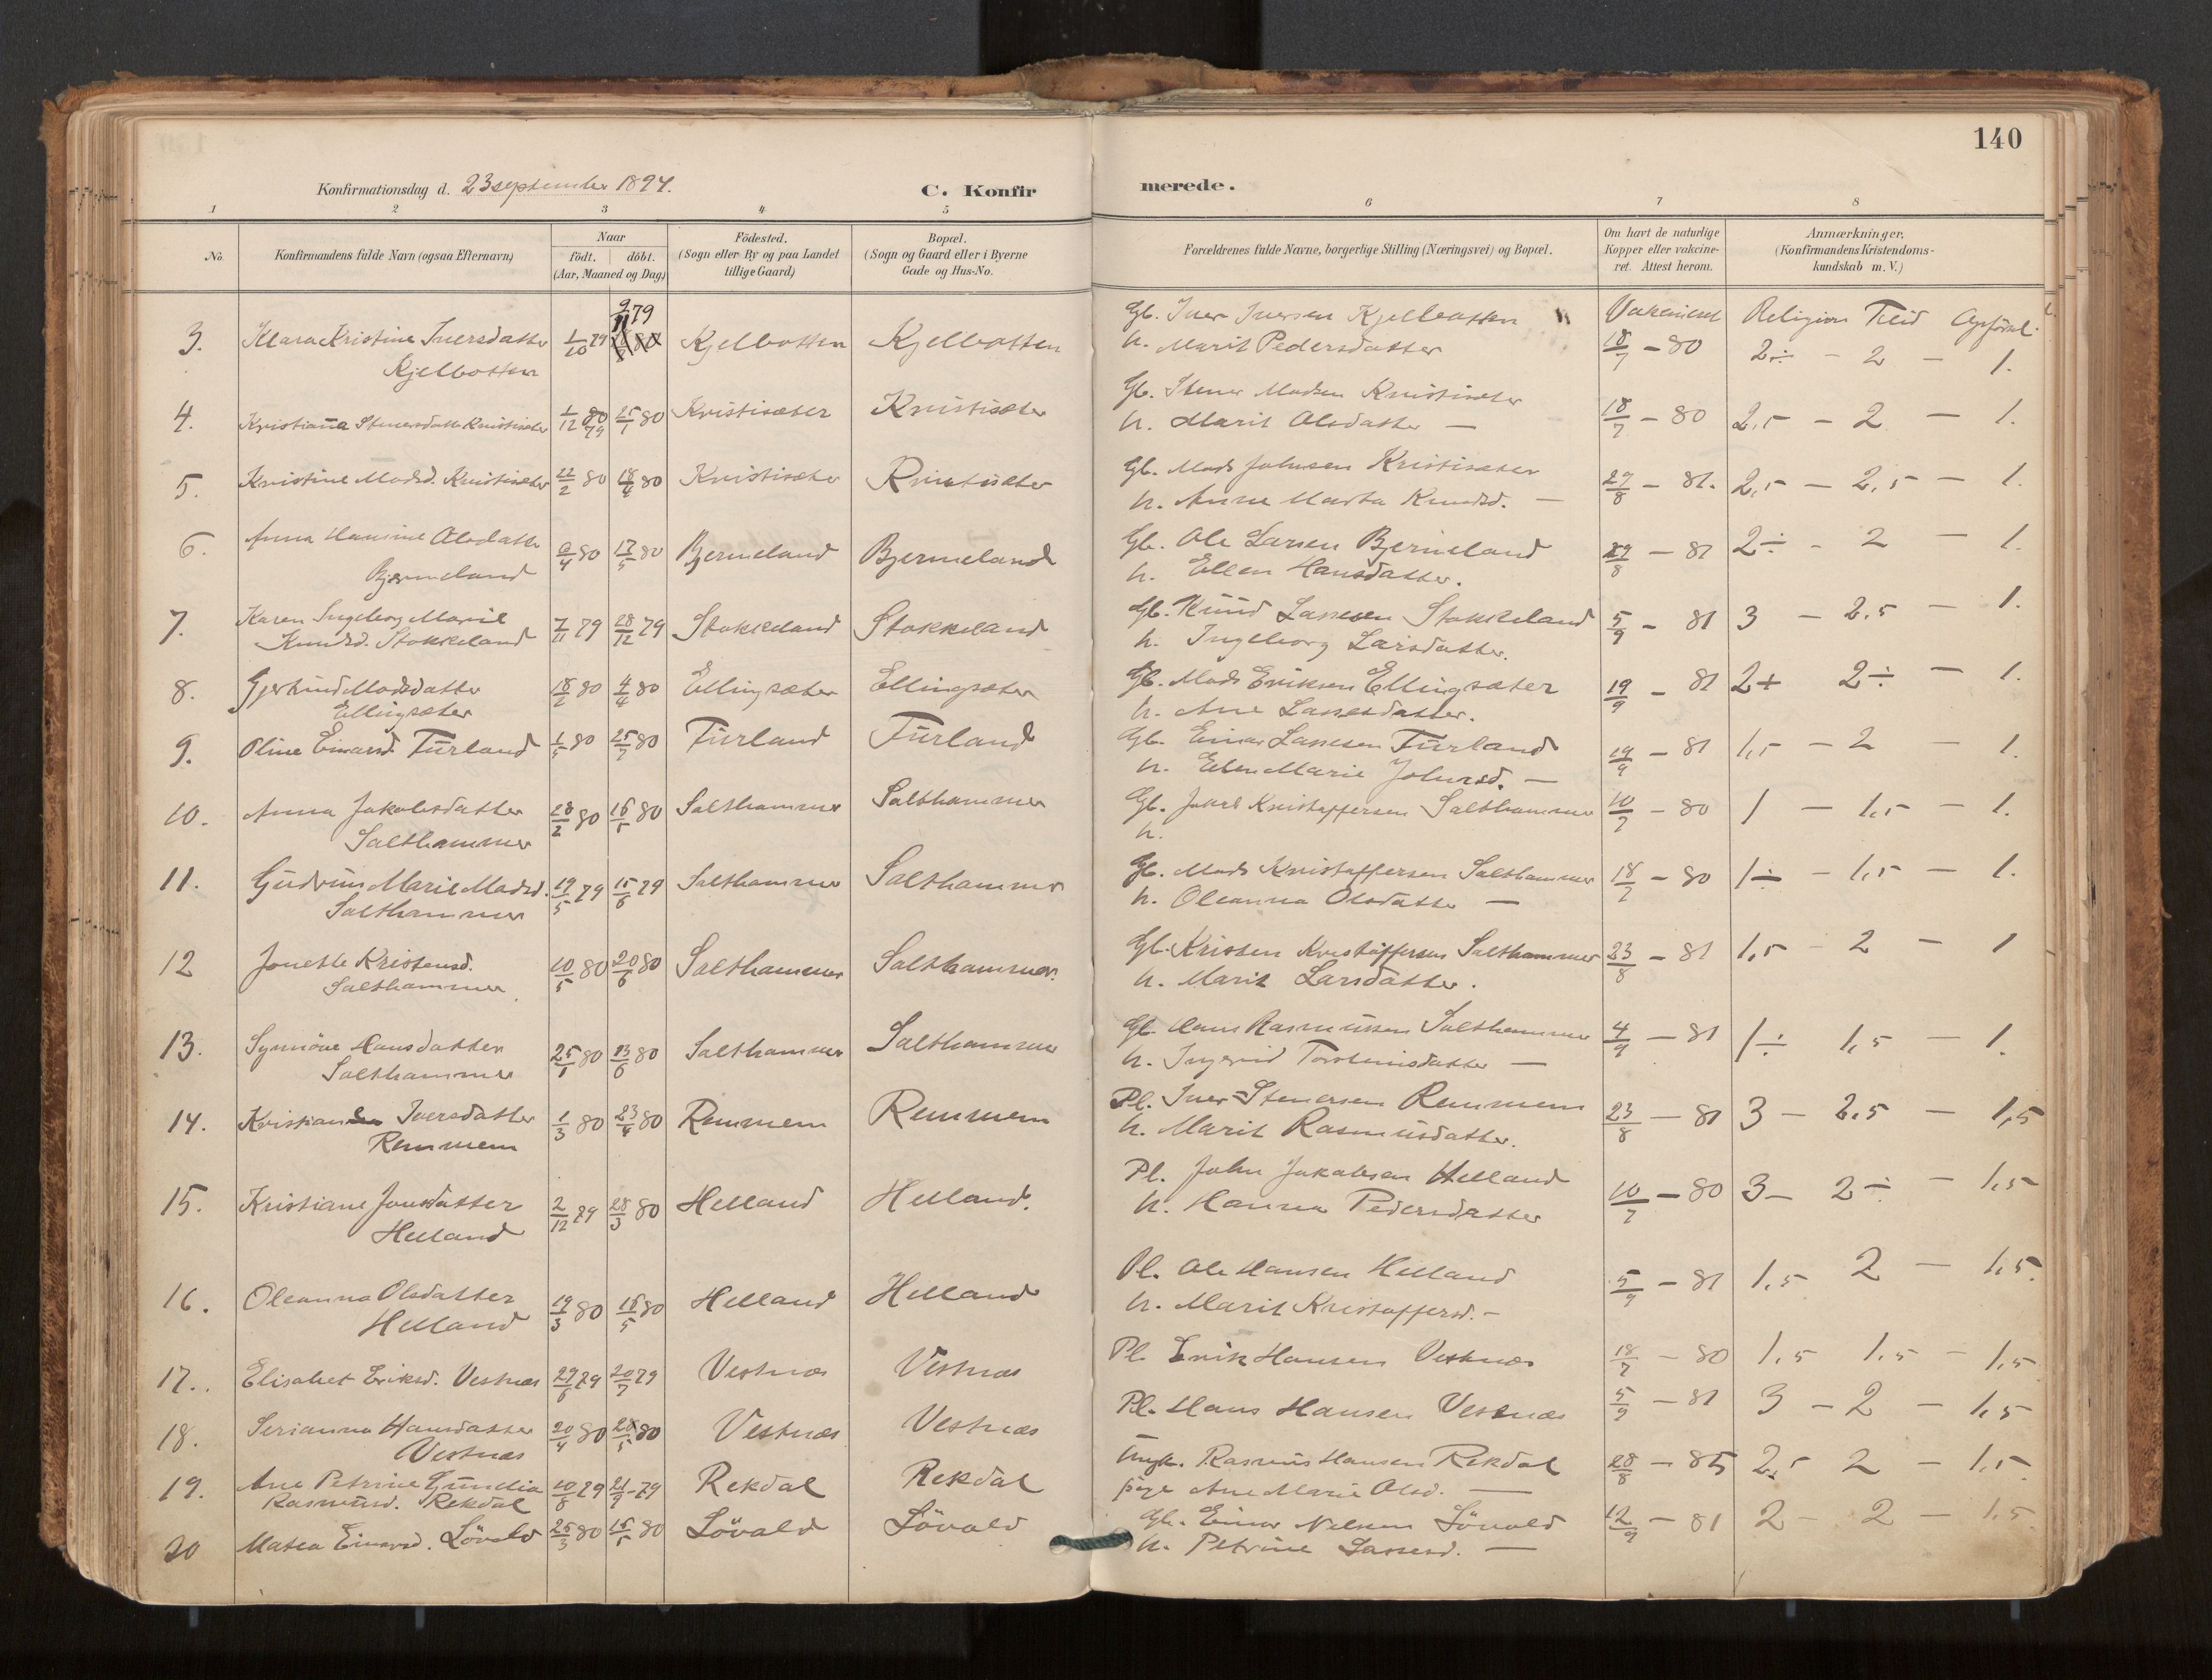 140
Konfirmationsdag d. 23 september 1894.
C. Konfirmerede.
1 2 3 4 5 6 7 8
No.
Konfirmandens fulde Navn (ogsaa Efternavn)
Naar
födt. döbt.
(Aar, Maaned og Dag)
Födested.
(Sogn eller By og paa Landet
tillige Gaard)
Bopæl.
(Sogn og Gaard eller i Byerne
Gade og Hus-No.
Forældrenes fulde Navne, borgerlige Stilling (Næringsvei) og Bopæl.
Om havt de naturlige
Kopper eller vakcine-
ret. Attest herom.
Anmærkninger.
(Konfirmandens Kristendoms-
kundskab m. V.)
Vakcineret Religion Flid Opførsel.
3. Klara Kristine Iversdatter 1/10 79 9/11 79 Kjelbotten Kjelbotten Gb. Iver Iversen Kjelbotten 18/7 - 80 2÷ - 2 - 1.
Kjelbotten h. Marit Pedersdatter
4. Kristiana Stenersdatt. Kristisæter 1/12 79 25/1 80 Kristisæter Kristisæter Gb. Stener Madsen Kristisæter 18/7 - 80 2,5 - 2 - 1.
h. Marit Olsdatter —
5. Kristine Madsd. Kristisæter 22/2 80 18/4 80 Kristisæter Kristisæter Gb. Mads Johnsen Kristisæter 27/8 - 81. 2,5 - 2,5 - 1.
h. Anne Marta Knudsd. —
6. Anna Hansine Olsdatter 6/4 80 17/5 80 Bjermeland Bjermeland Gb. Ole Larsen Bjermeland 29/8 - 81 2÷ - 2 - 1.
Bjermeland h. Ellen Hansdatter.
7. Karen Ingeborg Marie 7/11 79 28/12 79 Stokkeland Stokkeland Gb. Knud Lassesen Stokkeland 5/9 - 81 3 - 2,5 - 1.
Knudsd. Stokkeland h. Ingeborg Larsdatter.
8. Gjertrud Madsdatter 18/2 80 4/4 80 Ellingsæter Ellingsæter Gb. Mads Eriksen Ellingsæter 19/9 - 81 2+ 2÷ - 1.
Ellingsæter h. Ane Lassesdatter.
9. Oline Einarsd. Furland 1/5 80 25/7 80 Furland Furland Gb. Einar Lassesen Furland 19/9 - 81 1,5 - 2 - 1.
h. Ellen Marie Johnsd. —
10. Anna Jakobsdatter 28/2 80 16/5 80 Salthammer Salthammer Gb. Jakob Kristoffersen Salthammer 10/7 - 80 1 - 1,5 - 1.
Salthammer h.
11. Gudrun Marie Madsd. 19/5 79 15/6 79 Salthammer Salthammer Gb. Mads Kristoffersen Salthammer 18/7 - 80 1÷ - 1,5 - 1.
Salthammer h. Oleanna Olsdatter —
12 Jonette Kristensd. 10/5 80 20/6 80 Salthammer Salthammer. Gb. Kristen Kristoffersen Salthammer 23/8 - 81 1,5 - 2 - 1
Salthammer h. Marit Larsdatter.
13. Synnöve Hansdatter 25/1 80 13/6 80 Salthammer Salthammer Gb. Hans Rasmussen Salthammer 4/9 - 81 1÷ 1,5 - 1.
Salthammer h. Ingerid Torsteinsdatter —
14. Iversdatter 1/3 80 23/4 80 Remmem Remmem Pl. Iver Stenersen Remmem 23/8 - 81 3 - 2,5 - 1,5
Remmem h. Marit Rasmusdatter.
15. Kristiane Jonsdatter 2/12 79 28/3 80 Helland Helland. Pl. John Jakobsen Helland 10/7 - 80 3 - 2÷ - 1,5
Helland h. Hanna Pedersdatter
16. Oleanna Olsdatter 19/3 80 16/5 80 Helland Helland Pl. Ole Hansen Helland 5/9 - 81 1,5 2 - 1,5.
Helland h. Marit Kristoffersd. —
17. Elisabet Eriksd. Vestnæs 29/6 79 20/7 79 Vestnæs Vestnæs Pl. Erik Hansen Vestnæs 18/7 - 80 1,5 1,5 - 1,5
18. Serianna Hansdatter 20/4 80 28/5 80 Vestnæs Vestnæs Pl. Hans Hansen Vestnæs 5/9 - 81 3 - 2 - 1,5
Vestnæs
19. Ane Petrine Gundia 10/8 79 21/9 79 Rekdal Rekdal Ungk. Rasmus Hansen Rekdal 28/8 - 85 2,5 2 - 1,5.
Rasmusd. Rekdal pige Ane Marie Olsd. —
20 Matea Einarsd. Lövold 25/3 80 16/5 80 Lövold Lövold Gb. Einar Nilsen Lövold 12/9 - 81 2 - 2 - 1,5.
h. Petrine Lassesd. —